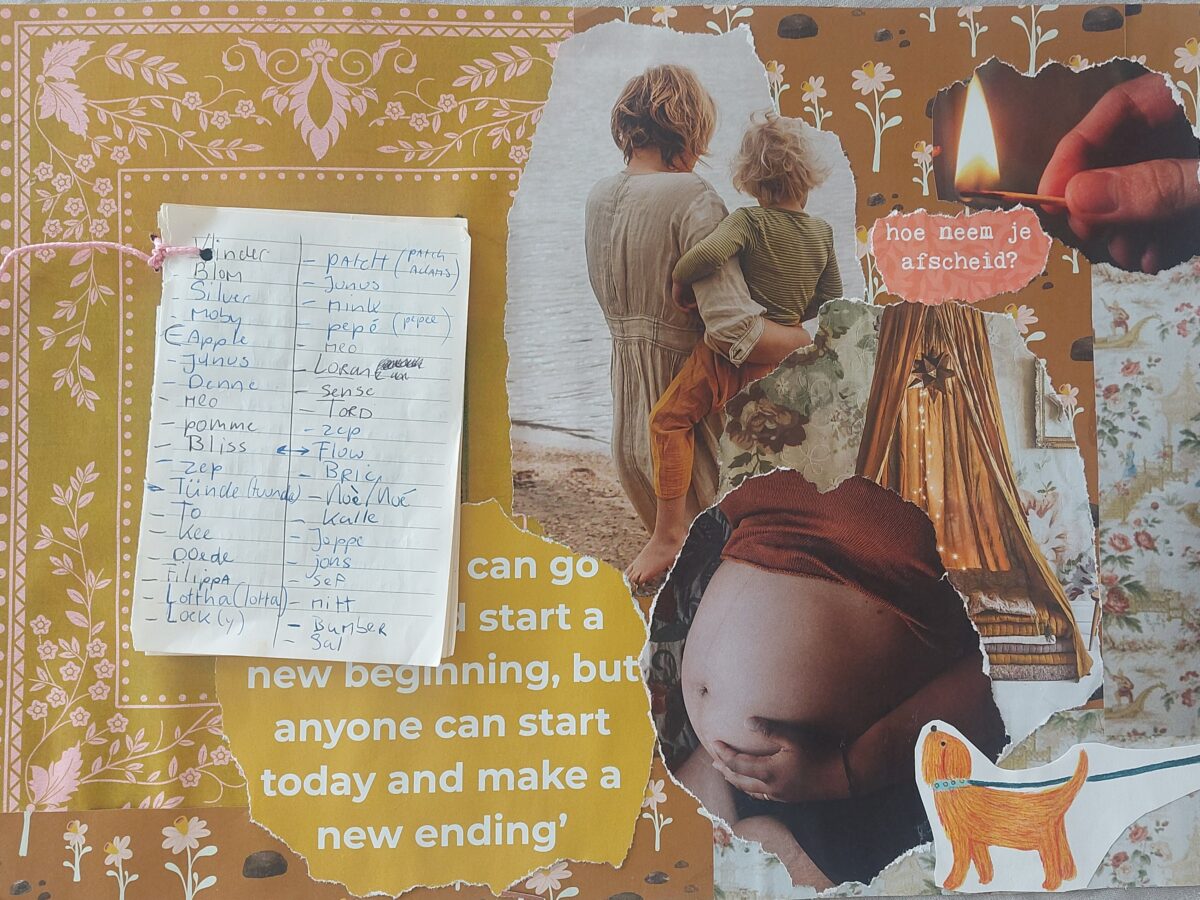 Vlinder
Blom
- Silver
- Moby
Apple
- Junus
- Denne
- Meo
- pomme
- Bliss
- zep
- Tünde (tuunde)
- To
- Kee
- Doede
- FilippA
- Lottha (lotta)
- Lock(y)
- PAtcH (PAtcH Adams)
- Junus
- Mink
- pepé (pepee)
- Meo
- LORAN
- Sense
- TORD
- zep
↔ Flow
- Bric
- Noè/Noé
- Kalle
- Jeppe
- jons
- Sef
- Mitt
- Bumber
- Sal
hoe neem je
afscheid?
can go
start a
new beginning, but
anyone can start
today and make a
new ending’